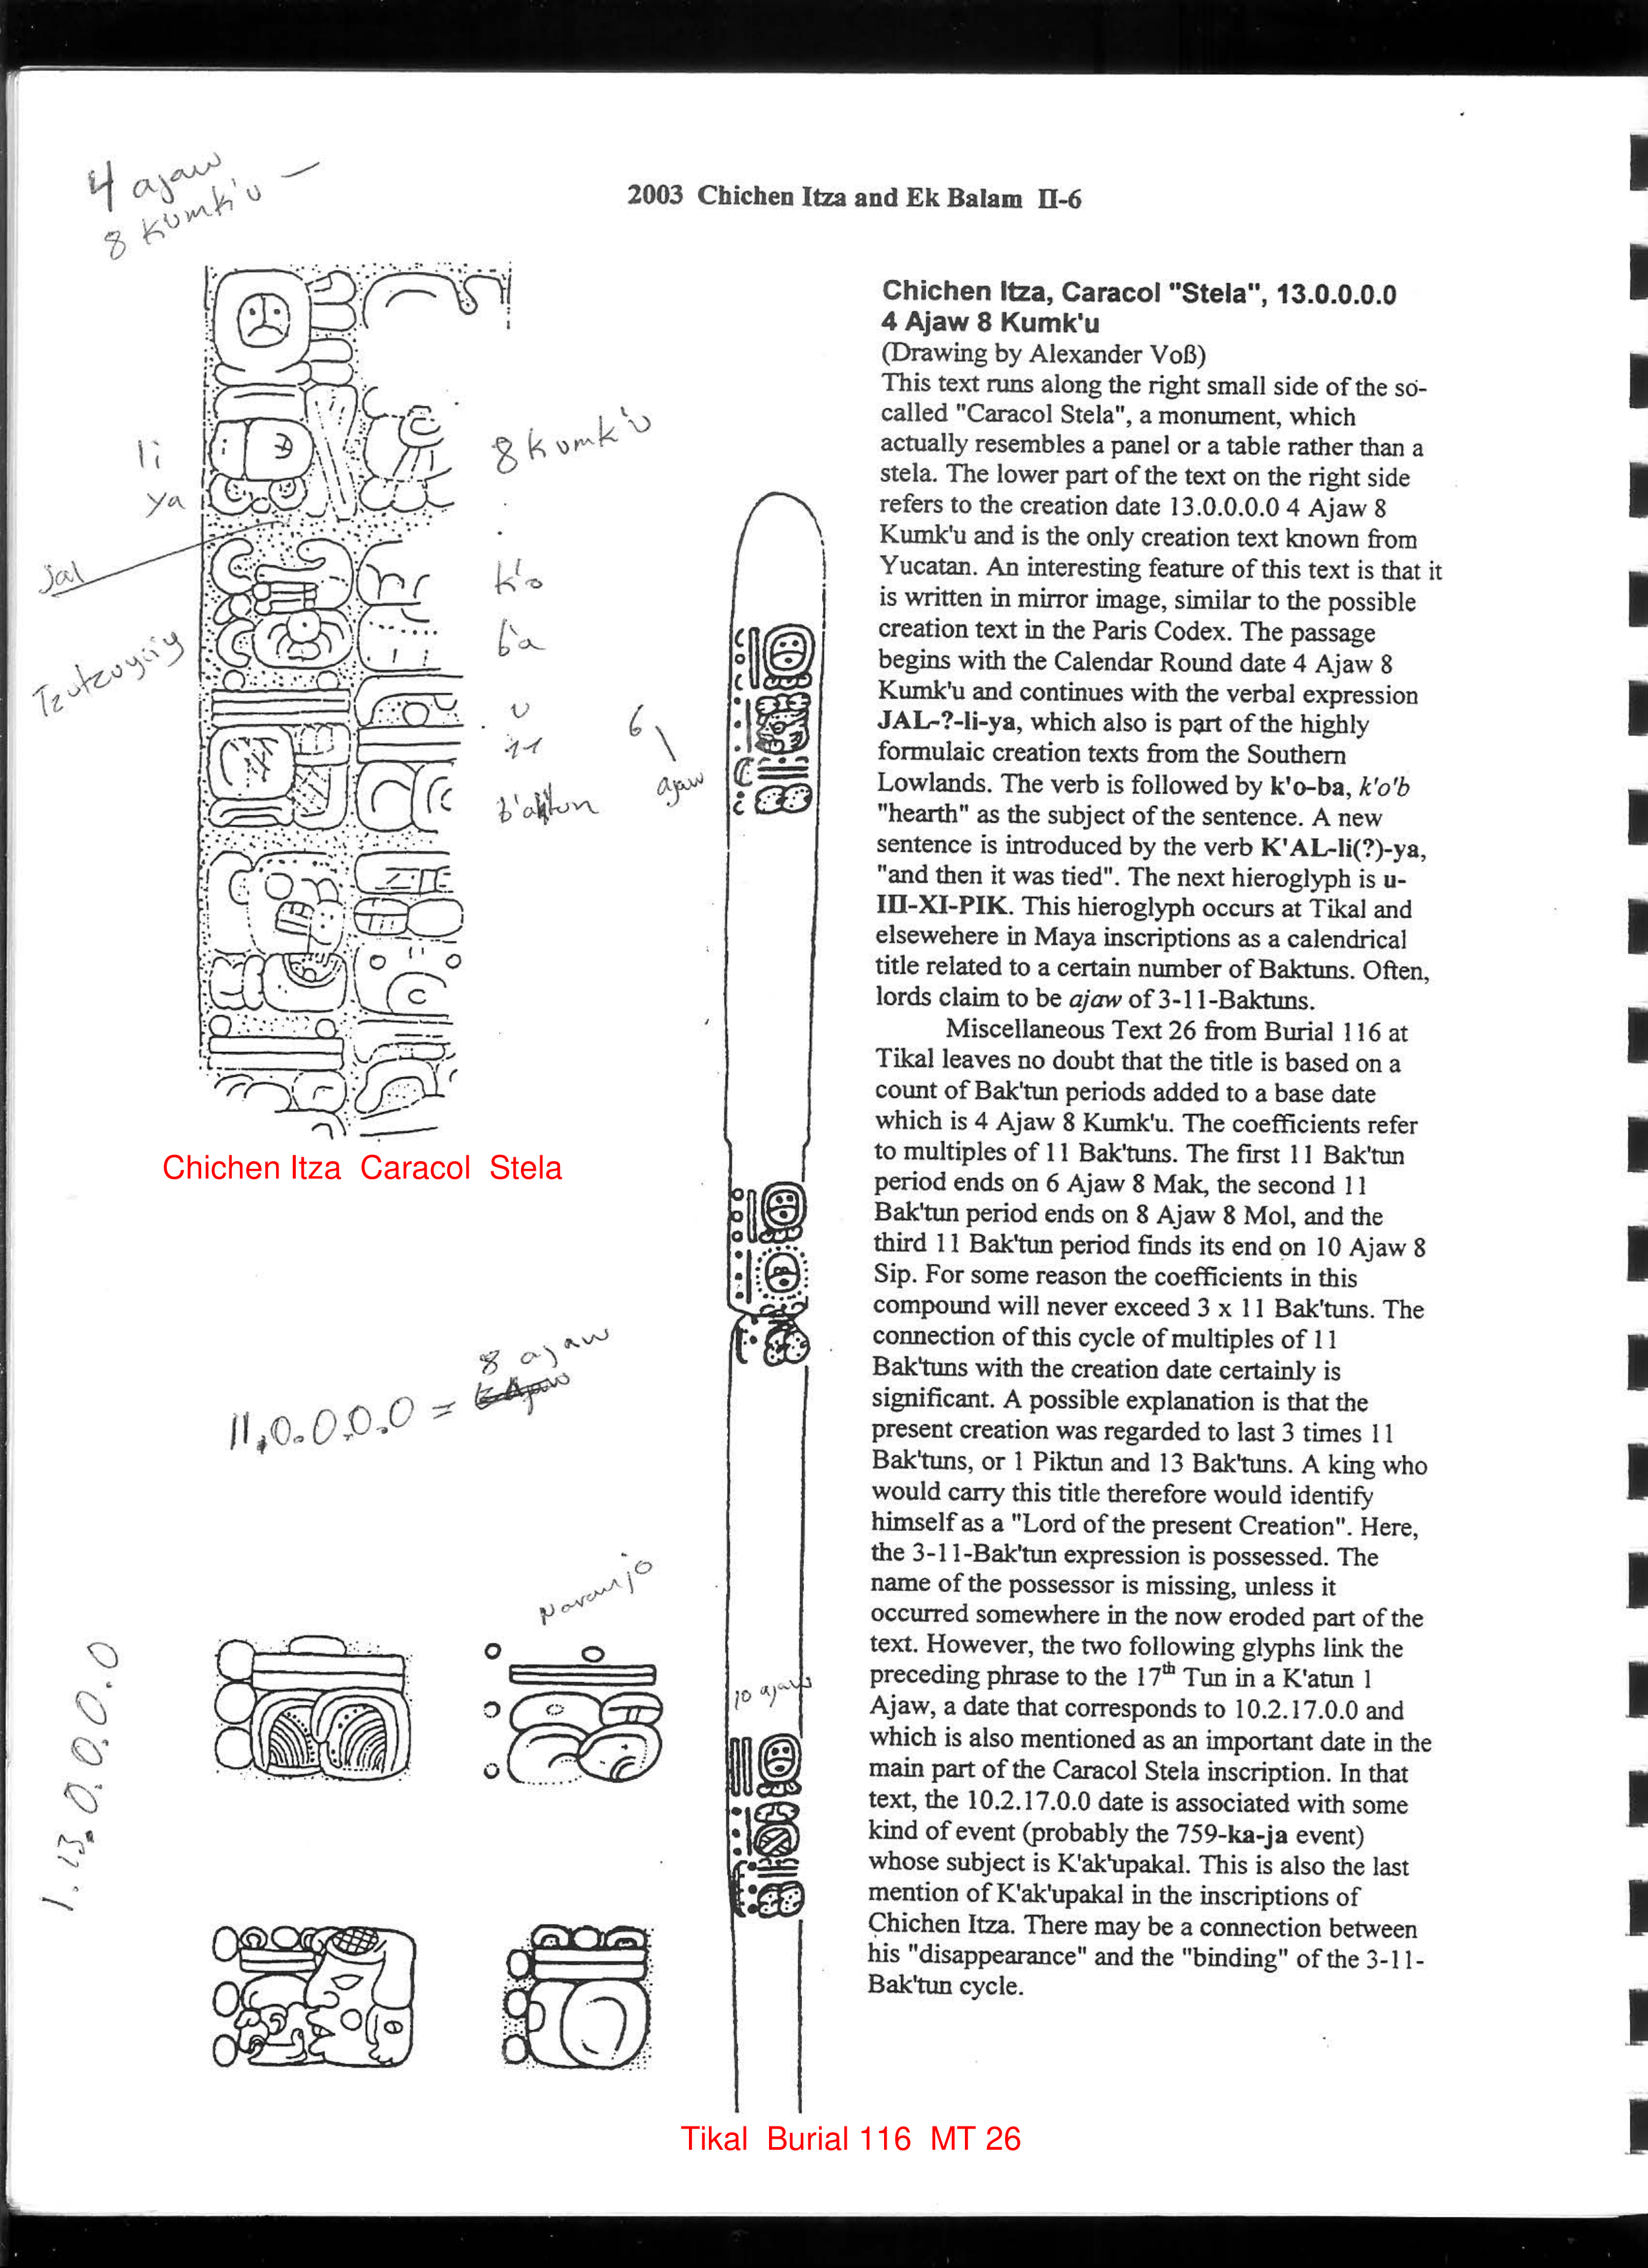 4 ajaw
8 Kumk'u
2003 Chichen Itza and Ek Balam II-6
li
ya
jal
Tzutzuyiiy
8 Kumk'u
k'o
ba
u
11
b'aktun
6
ajaw
Chichen Itza Caracol Stela
8 ajaw
11.0.0.0.0 =
Naranjo
1.13.0.0.0.0
10 ajaw
Tikal Burial 116 MT 26
Chichen Itza, Caracol "Stela", 13.0.0.0.0
4 Ajaw 8 Kumk'u
(Drawing by Alexander Voß)
This text runs along the right small side of the so-
called "Caracol Stela", a monument, which
actually resembles a panel or a table rather than a
stela. The lower part of the text on the right side
refers to the creation date 13.0.0.0.0 4 Ajaw 8
Kumk'u and is the only creation text known from
Yucatan. An interesting feature of this text is that it
is written in mirror image, similar to the possible
creation text in the Paris Codex. The passage
begins with the Calendar Round date 4 Ajaw 8
Kumk'u and continues with the verbal expression
JAL-?-li-ya, which also is part of the highly
formulaic creation texts from the Southern
Lowlands. The verb is followed by k'o-ba, k'o'b
"hearth" as the subject of the sentence. A new
sentence is introduced by the verb K'AL-li(?)-ya,
"and then it was tied". The next hieroglyph is u-
III-XI-PIK. This hieroglyph occurs at Tikal and
elsewehere in Maya inscriptions as a calendrical
title related to a certain number of Baktuns. Often,
lords claim to be ajaw of 3-11-Baktuns.
Miscellaneous Text 26 from Burial 116 at
Tikal leaves no doubt that the title is based on a
count of Bak'tun periods added to a base date
which is 4 Ajaw 8 Kumk'u. The coefficients refer
to multiples of 11 Bak'tuns. The first 11 Bak'tun
period ends on 6 Ajaw 8 Mak, the second 11
Bak'tun period ends on 8 Ajaw 8 Mol, and the
third 11 Bak'tun period finds its end on 10 Ajaw 8
Sip. For some reason the coefficients in this
compound will never exceed 3 x 11 Bak'tuns. The
connection of this cycle of multiples of 11
Bak'tuns with the creation date certainly is
significant. A possible explanation is that the
present creation was regarded to last 3 times 11
Bak'tuns, or 1 Piktun and 13 Bak'tuns. A king who
would carry this title therefore would identify
himself as a "Lord of the present Creation". Here,
the 3-11-Bak'tun expression is possessed. The
name of the possessor is missing, unless it
occurred somewhere in the now eroded part of the
text. However, the two following glyphs link the
preceding phrase to the 17th Tun in a K'atun 1
Ajaw, a date that corresponds to 10.2.17.0.0 and
which is also mentioned as an important date in the
main part of the Caracol Stela inscription. In that
text, the 10.2.17.0.0 date is associated with some
kind of event (probably the 759-ka-ja event)
whose subject is K'ak'upakal. This is also the last
mention of K'ak'upakal in the inscriptions of
Chichen Itza. There may be a connection between
his "disappearance" and the "binding" of the 3-11-
Bak'tun cycle.